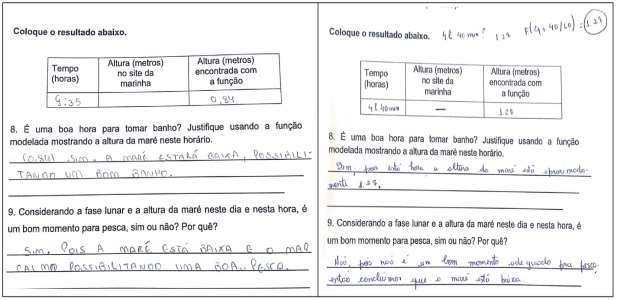 Coloque o resultado abaixo.
Tempo (horas)
Altura (metros) no site da marinha
Altura (metros) encontrada com a função
9:35
0,84
8. É uma boa hora para tomar banho? Justifique usando a função
modelada mostrando a altura da maré neste horário.
(0.84) SIM, A MARÉ ESTARÁ BAIXA, POSSIBILI-
TANDO UM BOM BANHO.
9. Considerando a fase lunar e a altura da maré neste dia e nesta hora, é
um bom momento para pesca, sim ou não? Por quê?
SIM, POIS A MARÉ ESTÁ BAIXA E O MAR
CALMO POSSIBILITANDO UMA BOA PESCA.
Coloque o resultado abaixo.
F(4+40/60) = 1.27
Tempo (horas)
Altura (metros) no site da marinha
Altura (metros) encontrada com a função
—
8. É uma boa hora para tomar banho? Justifique usando a função
modelada mostrando a altura da maré neste horário.
Sim, pois esta hora a altura da maré está aproximada-
mente 1.27,
9. Considerando a fase lunar e a altura da maré neste dia e nesta hora, é
um bom momento para pesca, sim ou não? Por quê?
Não, pois não é um bom momento adequado pra pesca,
então concluímos que a maré está baixa.